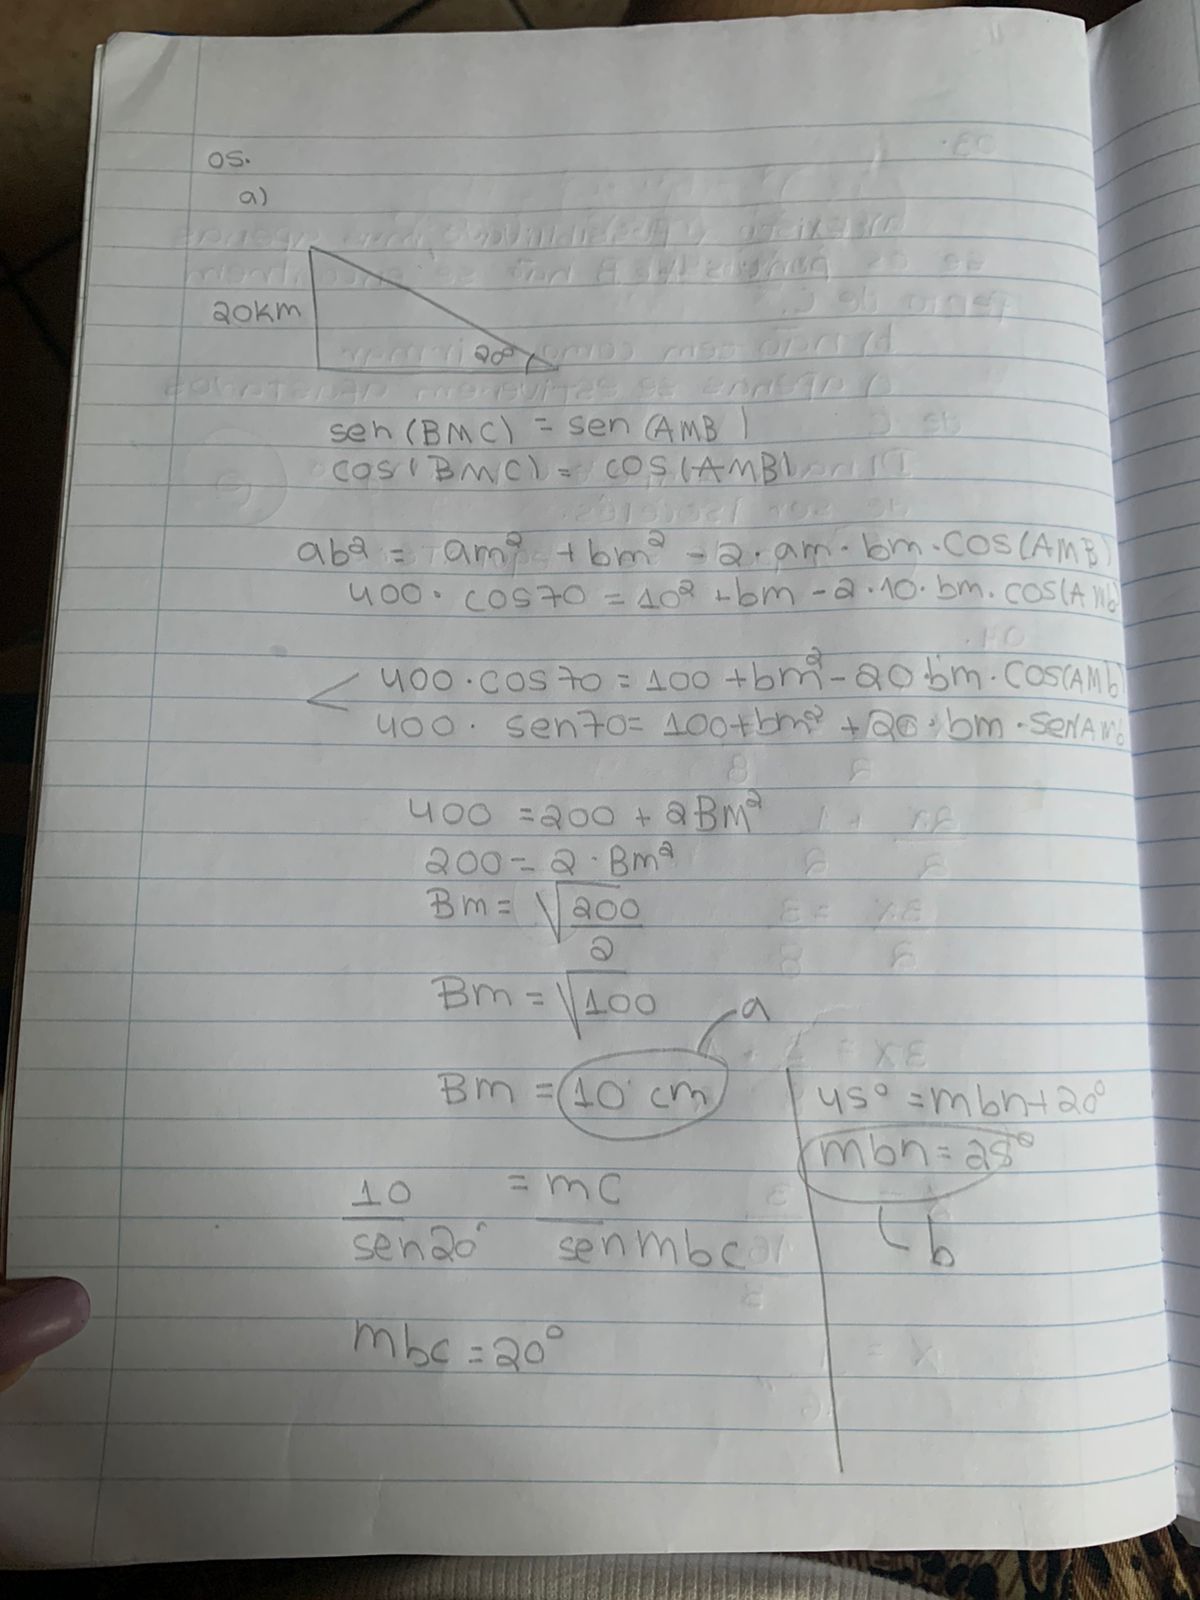 05.
a)
20km
20°
sen(BMC) = sen(AMB)
cos(BMC) = cos(AMB)
ab² = am² + bm² - 2·am·bm·cos(AMB)
400·cos70 = 10² + bm - 2·10·bm·cos(AMb
400·cos70 = 100 + bm² - 20·bm·cos(AMb)
400· sen70 = 100+bm² + 20·bm·senAMb
400 = 200 + 2Bm²
200 = 2·Bm²
Bm = √200/2
Bm = √100
a
Bm = 10 cm
10/sen20° = mc/senmbc
mbc = 20°
45° = mbn+20°
mbn = 25°
b